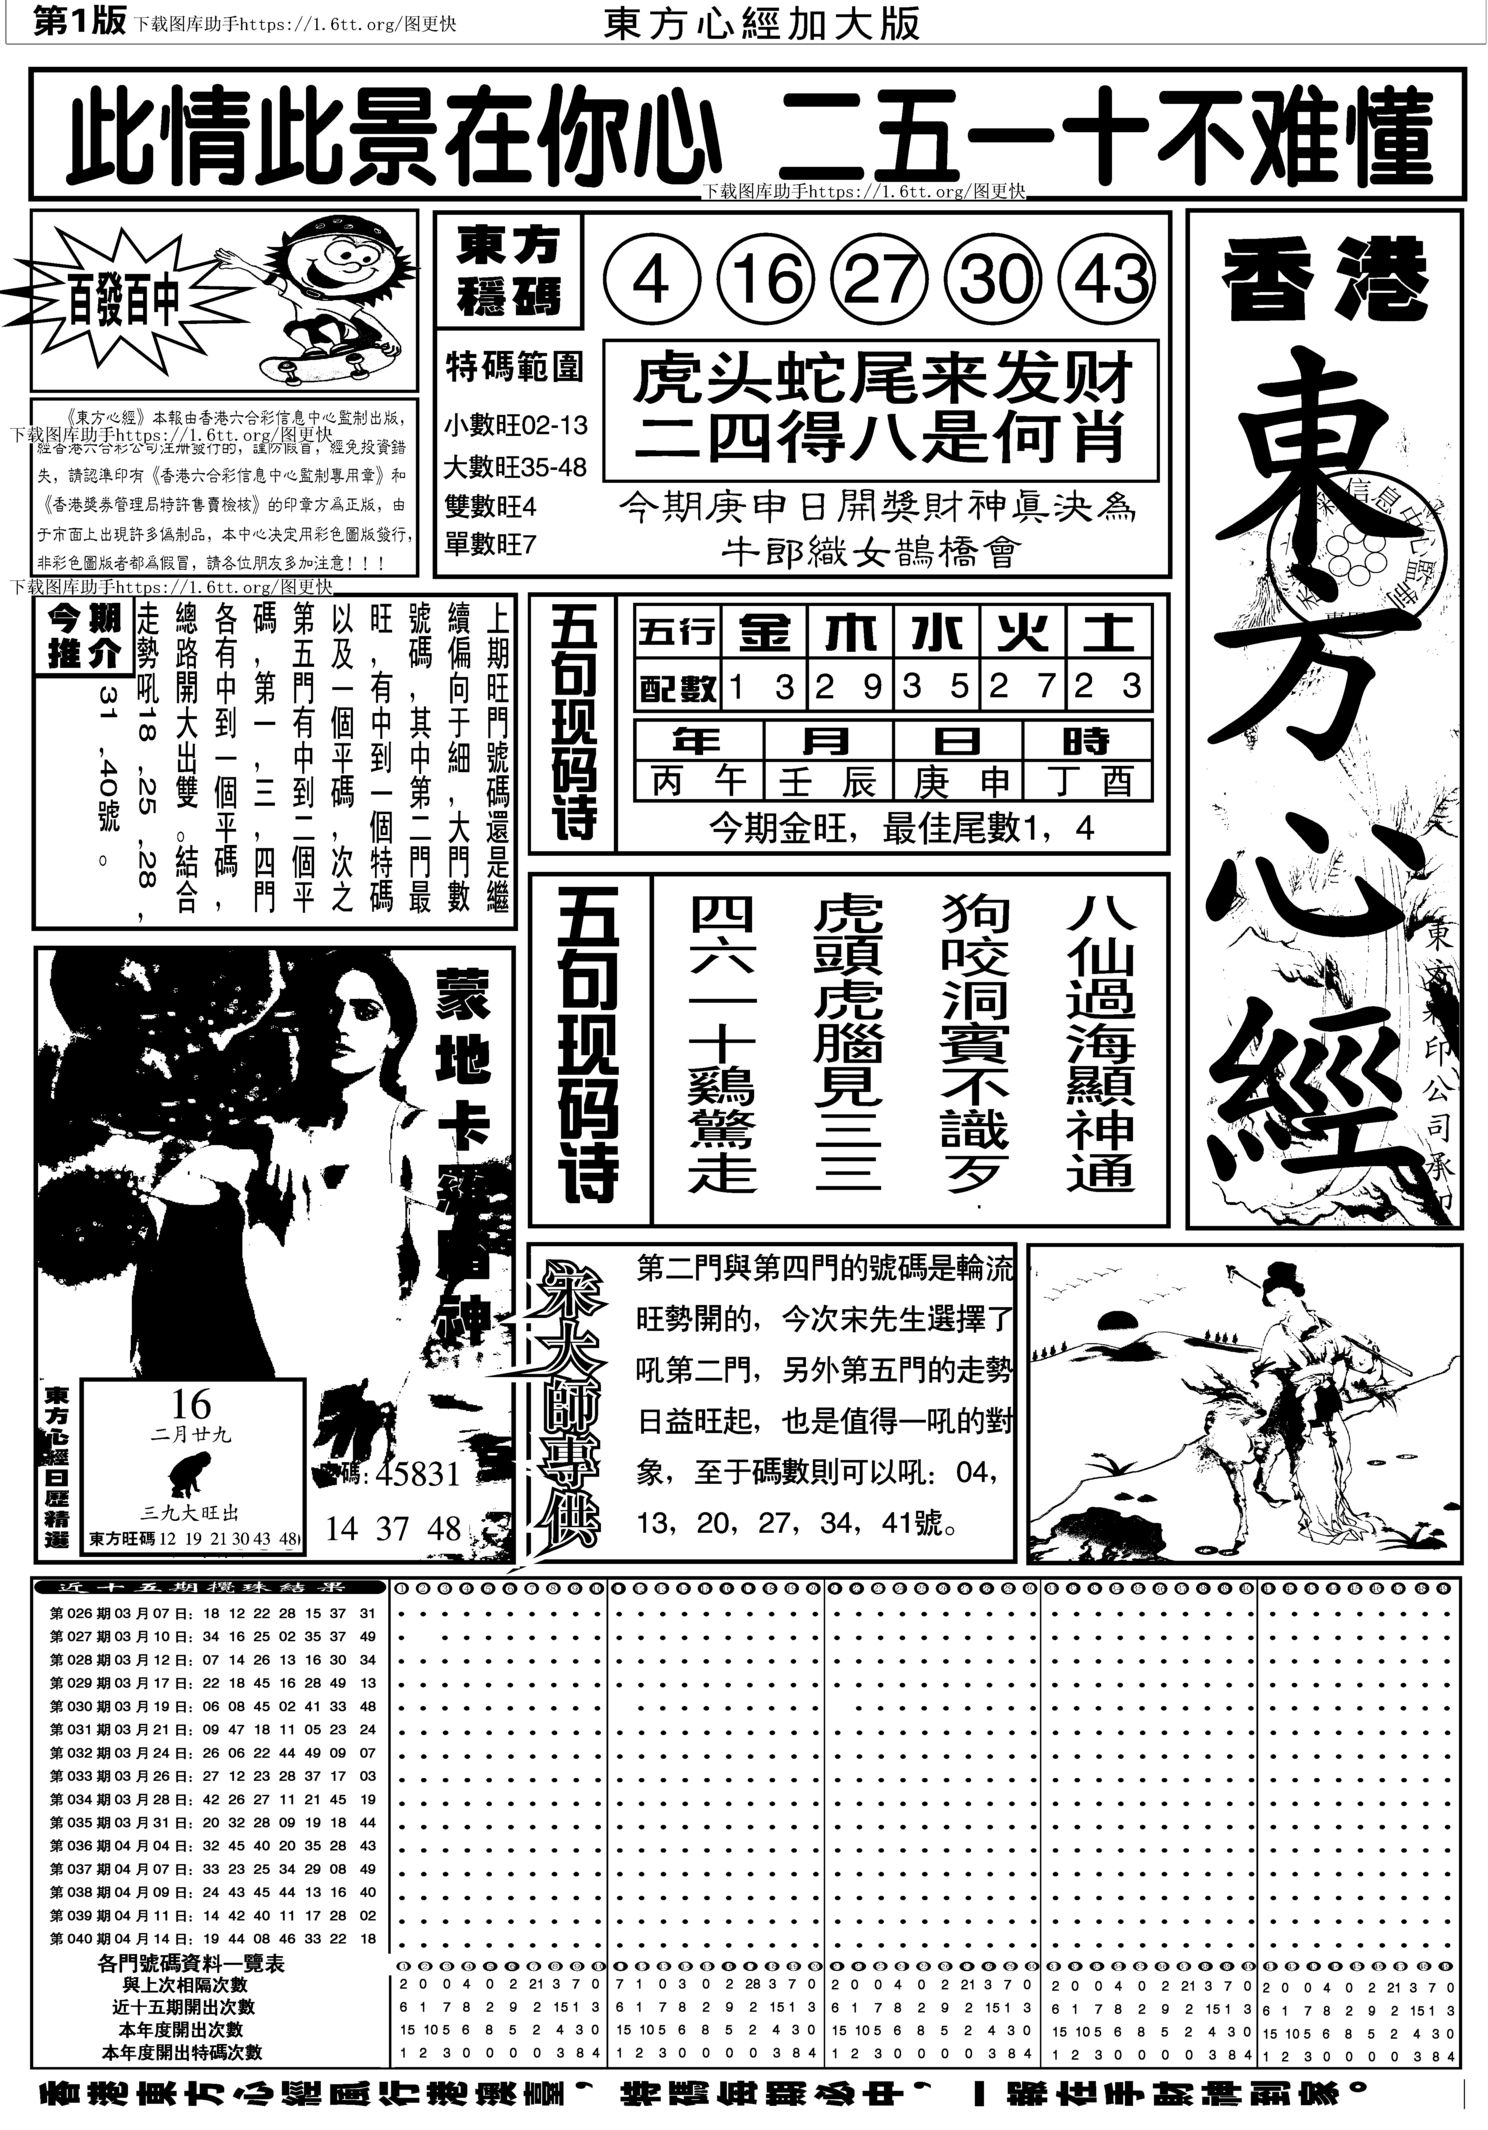 第1版
下载图库助手https://1.6tt.org/图更快
東方心經加大版
此情此景在你心 二五一十不难懂
下载图库助手https://1.6tt.org/图更快
百發百中
《東方心經》本報由香港六合彩信息中心監制出版，
下载图库助手https://1.6tt.org/图更快
經香港六合彩公司注册發行的，謹防假冒，經免投資錯
失，請認準印有《香港六合彩信息中心監制專用章》和
《香港獎券管理局特許售賣檢核》的印章方爲正版，由
于市面上出現許多偽制品，本中心决定用彩色圖版發行，
非彩色圖版者都爲假冒，請各位朋友多加注意！！！
下载图库助手https://1.6tt.org/图更快
東方
穩碼
4 16 27 30 43
特碼範圍
小數旺02-13
大數旺35-48
雙數旺4
單數旺7
虎头蛇尾来发财
二四得八是何肖
今期庚申日開獎財神眞决為
牛郎織女鵲橋會
香港
東方心經
東方彩印公司承印
今期
推介
上期旺門號碼還是繼
續偏向于細，大門數
號碼，其中第二門最
旺，有中到一個特碼
以及一個平碼，次之
第五門有中到二個平
碼，第一，三，四門
各有中到一個平碼，
總路開大出雙。結合
走勢吼18,25,28,
31,40號。
五句现码诗
五行 金 木 水 火 土
配數 1 3 2 9 3 5 2 7 2 3
年 月 日 時
丙午 壬辰 庚申 丁酉
今期金旺，最佳尾數1，4
五句现码诗
八仙過海顯神通
狗咬洞賓不識歹
虎頭虎腦見三三
四六一十鷄驚走
蒙地卡羅賭神
東方心經日歷精選
16
二月廿九
三九大旺出
東方旺碼 12 19 21 30 43 48
碼：45831
14 37 48
宋大師專供
第二門與第四門的號碼是輪流
旺勢開的，今次宋先生選擇了
吼第二門，另外第五門的走勢
日益旺起，也是值得一吼的對
象，至于碼數則可以吼：04，
13，20，27，34，41號。
近十五期攪珠結果
第026期03月07日：18 12 22 28 15 37 31
第027期03月10日：34 16 25 02 35 37 49
第028期03月12日：07 14 26 13 16 30 34
第029期03月17日：22 18 45 16 28 49 13
第030期03月19日：06 08 45 02 41 33 48
第031期03月21日：09 47 18 11 05 23 24
第032期03月24日：26 06 22 44 49 09 07
第033期03月26日：27 12 23 28 37 17 03
第034期03月28日：42 26 27 11 21 45 19
第035期03月31日：20 32 28 09 19 18 44
第036期04月04日：32 45 40 20 35 28 43
第037期04月07日：33 23 25 34 29 08 49
第038期04月09日：24 43 45 44 13 16 40
第039期04月11日：14 42 40 11 17 28 02
第040期04月14日：19 44 08 46 33 22 18
各門號碼資料一覽表
與上次相隔次數 2 0 0 4 0 2 21 3 7 0 7 1 0 3 0 2 28 3 7 0 2 0 0 4 0 2 21 3 7 0 2 0 0 4 0 2 21 3 7 0 2 0 0 4 0 2 21 3 7 0
近十五期開出次數 6 1 7 8 2 9 2 15 1 3 6 1 7 8 2 9 2 15 1 3 6 1 7 8 2 9 2 15 1 3 6 1 7 8 2 9 2 15 1 3 6 1 7 8 2 9 2 15 1 3
本年度開出次數 15 10 5 6 8 5 2 4 3 0 15 10 5 6 8 5 2 4 3 0 15 10 5 6 8 5 2 4 3 0 15 10 5 6 8 5 2 4 3 0 15 10 5 6 8 5 2 4 3 0
本年度開出特碼次數 1 2 3 0 0 0 0 3 8 4 1 2 3 0 0 0 0 3 8 4 1 2 3 0 0 0 0 3 8 4 1 2 3 0 0 0 0 3 8 4 1 2 3 0 0 0 0 3 8 4
香港東方心經風行港澳臺，特碼每期必中，一報在手財神到家。